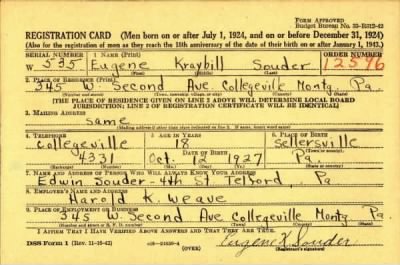 Form Approved
Budget Bureau No. 33-R012-42
REGISTRATION CARD (Men born on or after July 1, 1924, and on or before December 31, 1924)
(Also for the registration of men as they reach the 18th anniversary of the date of their birth on or after January 1, 1943.)
SERIAL NUMBER 1. NAME (Print) ORDER NUMBER
W 535 Eugene Kraybill Souder 12596
(First) (Middle) (Last)
2. PLACE OF RESIDENCE (Print)
345 W. Second Ave Collegeville Montg. Pa.
(Number and street) (Town, township, village, or city) (County) (State)
[THE PLACE OF RESIDENCE GIVEN ON LINE 2 ABOVE WILL DETERMINE LOCAL BOARD
JURISDICTION; LINE 2 OF REGISTRATION CERTIFICATE WILL BE IDENTICAL]
3. MAILING ADDRESS
same
[Mailing address if other than place indicated on line 2. If same, insert word same]
4. TELEPHONE 5. AGE IN YEARS 6. PLACE OF BIRTH
Collegeville 18 Sellersville
DATE OF BIRTH (Town or county)
4331 Oct. 12 1927 Pa.
(Exchange) (Number) (Mo.) (Day) (Yr.) (State or country)
7. NAME AND ADDRESS OF PERSON WHO WILL ALWAYS KNOW YOUR ADDRESS
Edwin Souder - 4th St Telford, Pa.
8. EMPLOYER'S NAME AND ADDRESS
Harold K. Weave
9. PLACE OF EMPLOYMENT OR BUSINESS
345 W. Second Ave Collegeville Montg Pa
(Number and street or R. F. D. number) (Town) (County) (State)
I AFFIRM THAT I HAVE VERIFIED ABOVE ANSWERS AND THAT THEY ARE TRUE.
DSS Form 1 (Rev. 11-16-42) (OVER) Eugene K. Souder
(Registrant's signature)